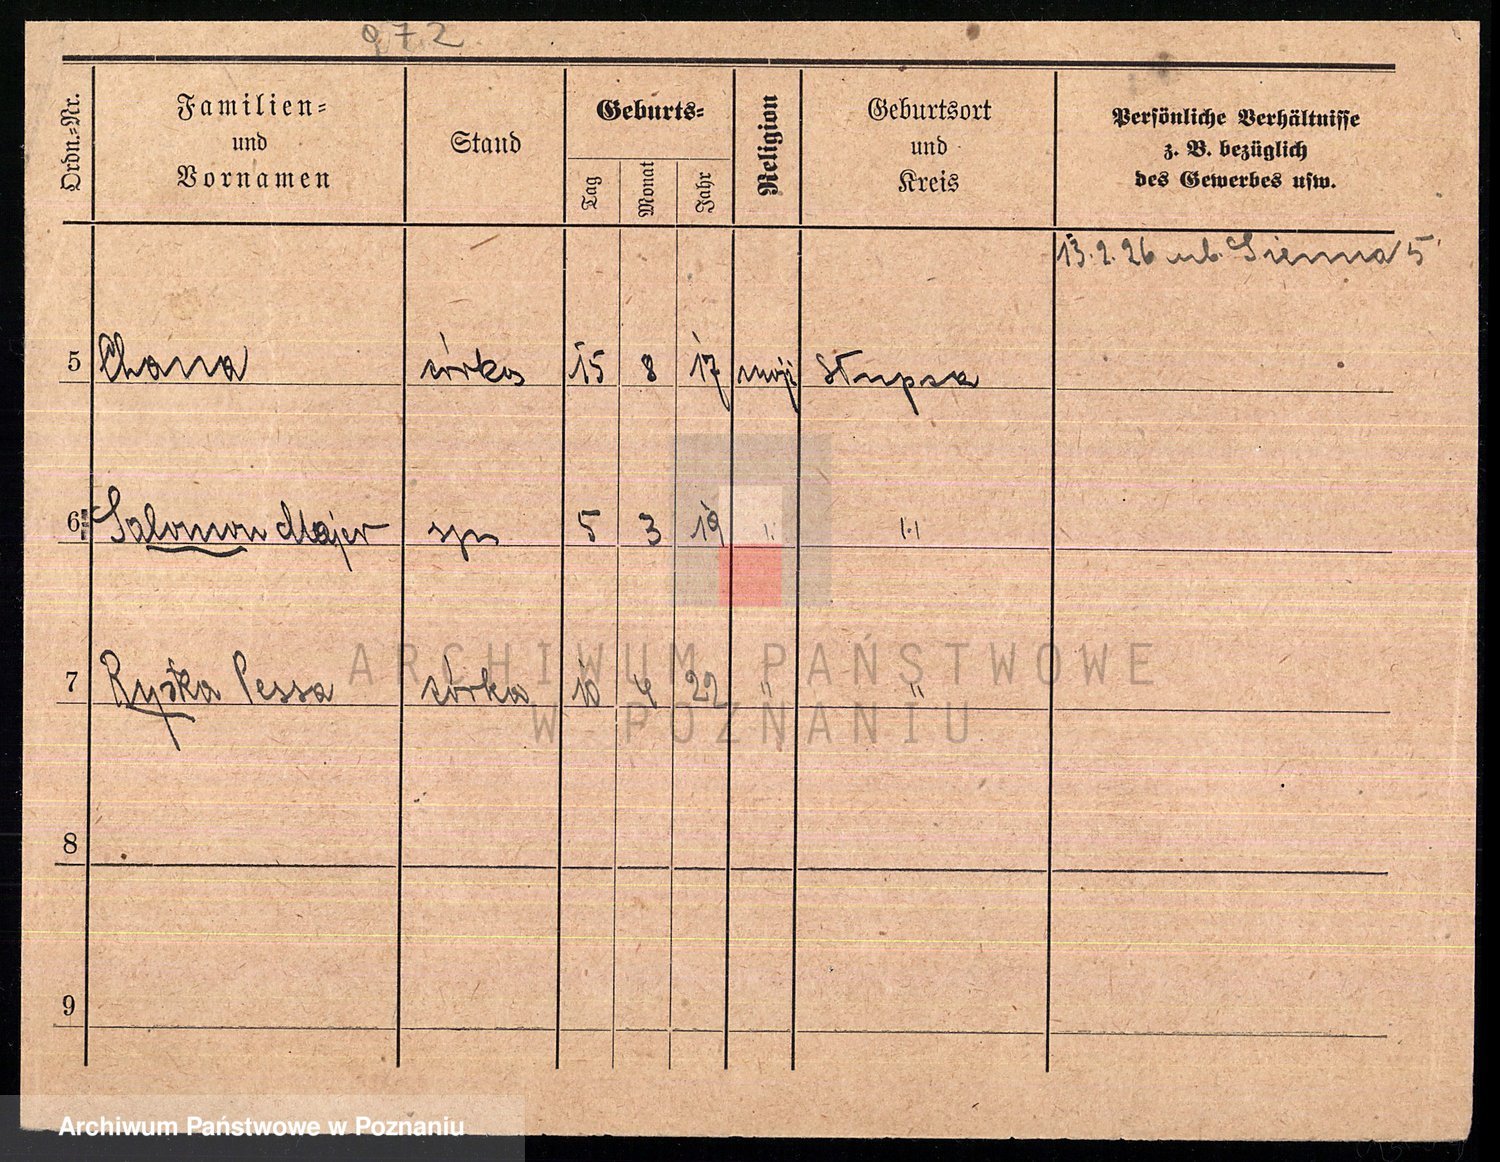 972
Ordn.=Nr.
Familien=
und
Vornamen
Stand
Geburts=
Tag
Monat
Jahr
Religion
Geburtsort
und
Kreis
Persönliche Verhältnisse
z. B. bezüglich
des Gewerbes usw.
13.2.26 ul. Sienna 5
5 Chana córka 15 8 17 mojż Słupca
6 Salomon Majer syn 5 3 19 "
7 Ryfka Pessa córka 10 4 22 " "
8
9
ARCHIWUM PAŃSTWOWE
W POZNANIU
Archiwum Państwowe w Poznaniu